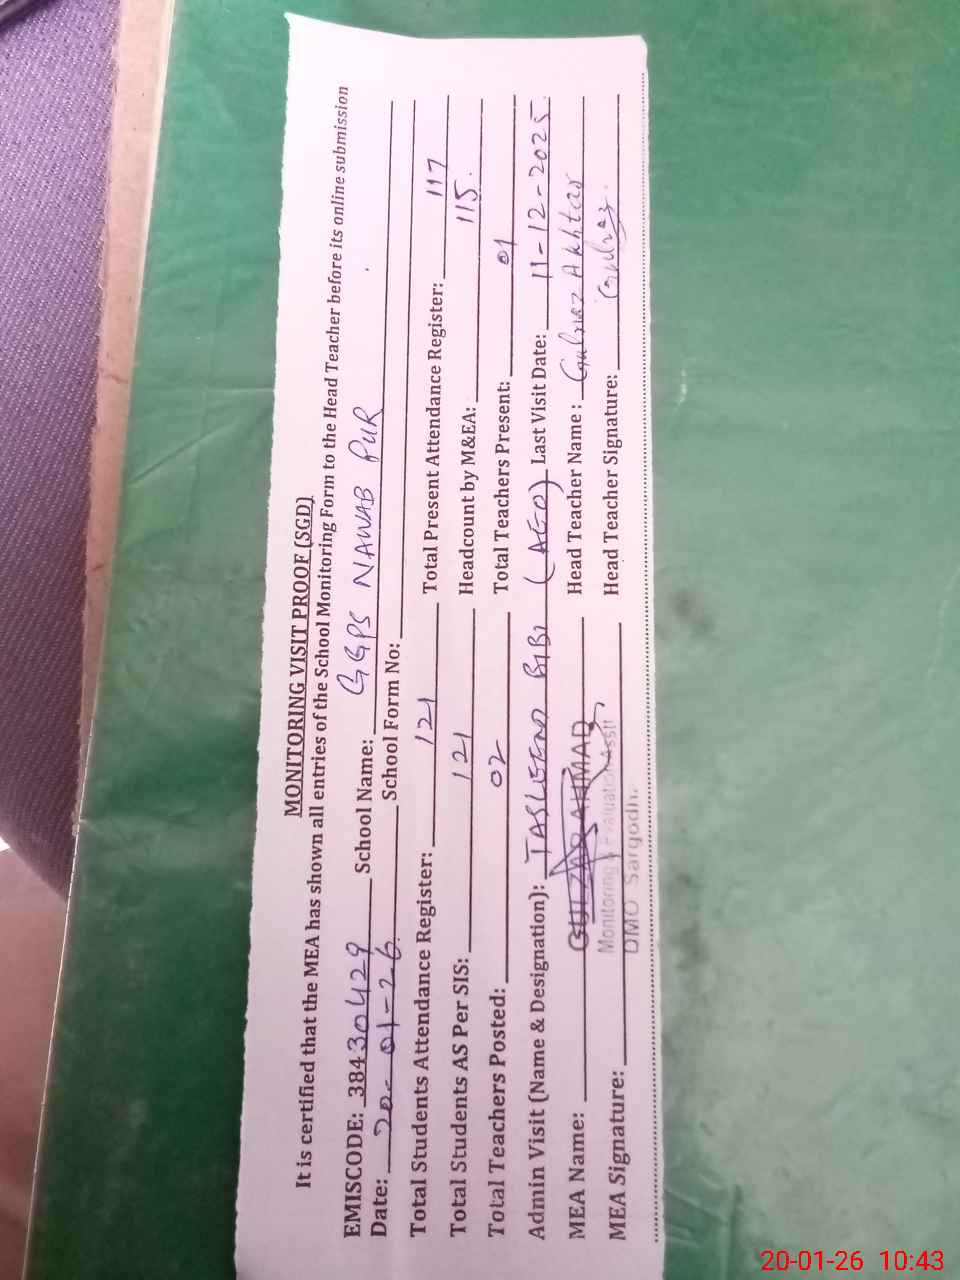 MONITORING VISIT PROOF (SGD)
It is certified that the MEA has shown all entries of the School Monitoring Form to the Head Teacher before its online submission
EMISCODE: 38430429 School Name: GGPS NAWAB PUR
Date: 20-01-26. School Form No:
Total Students Attendance Register: 121 Total Present Attendance Register: 117
Total Students AS Per SIS: 121 Headcount by M&EA: 115.
Total Teachers Posted: 02 Total Teachers Present: 01
Admin Visit (Name & Designation): TASLEEM BIBI (AEO) Last Visit Date: 11-12-2025.
MEA Name: GULZAR AHMAD Head Teacher Name: Gulnaz Akhtar
Monitoring & Evaluation Asstt
MEA Signature: DMO Sargodh. Head Teacher Signature: Gulnaz.
20-01-26 10:43